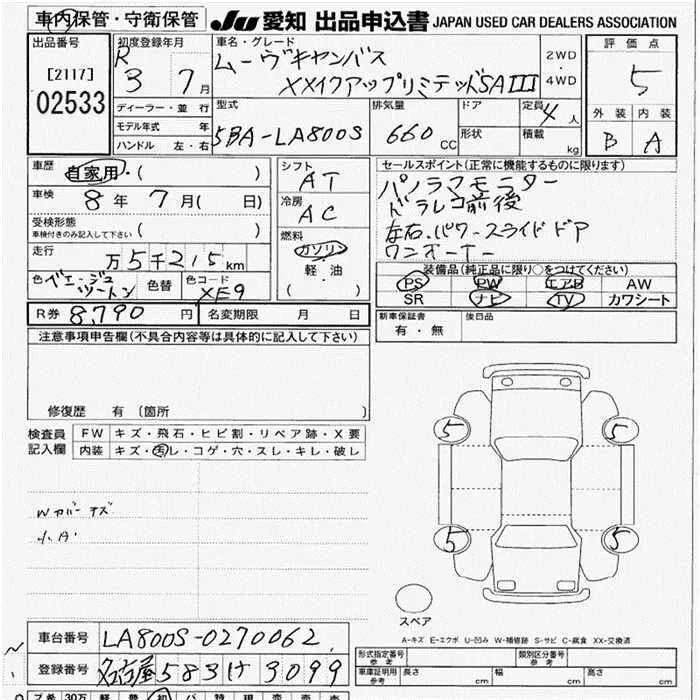 車内保管・守衛保管
JU 愛知 出品申込書 JAPAN USED CAR DEALERS ASSOCIATION
出品番号
[2117]
02533
初度登録年月
R 3 7月
ディーラー・並行
モデル年式 年
ハンドル 左・右
車名・グレード
ムーヴキャンバス
XXイクアップリミテッドSAIII
2WD
4WD
型式
5BA-LA800S
排気量
660 CC
ドア
形状
定員 4人
積載 kg
評価点
5
外装 内装
B A
車歴 自家用・( )
車検 8年 7月( 日)
受検形態
車検付きのみ記入して下さい ( )
走行 万5千215km
色 ベージュツートン 色替 色コード XE9
シフト AT
冷房 AC
燃料
ガソリン
軽油
( ・ )
セールスポイント(正常に機能するものに限ります)
パノラマモニター
ドラレコ前後
左右パワースライドドア
ワンオーナー
装備品(純正品に限り○をつけてください)
PS PW エアB AW
SR ナビ TV カワシート
R券 8,790円 名変期限 月 日
新車保証書 有・無 後日品
注意事項申告欄(不具合内容等は具体的に記入して下さい)
修復歴 有 〔箇所 〕
検査員記入欄
FW キズ・飛石・ヒビ割・リペア跡・X要
内装 キズ・汚レ・コゲ・穴・スレ・キレ・破レ
Wカバーキズ
小A
5 5
5 5
スペア
A-キズ E-エクボ U-凹み W-補修跡 S-サビ C-腐食 XX-交換済
車台番号 LA800S-0270062
登録番号 名古屋 583 け 3099
形式指定番号 参考 類別区分番号 参考
車庫証明用 参考 長さ cm 幅 cm 高さ cm